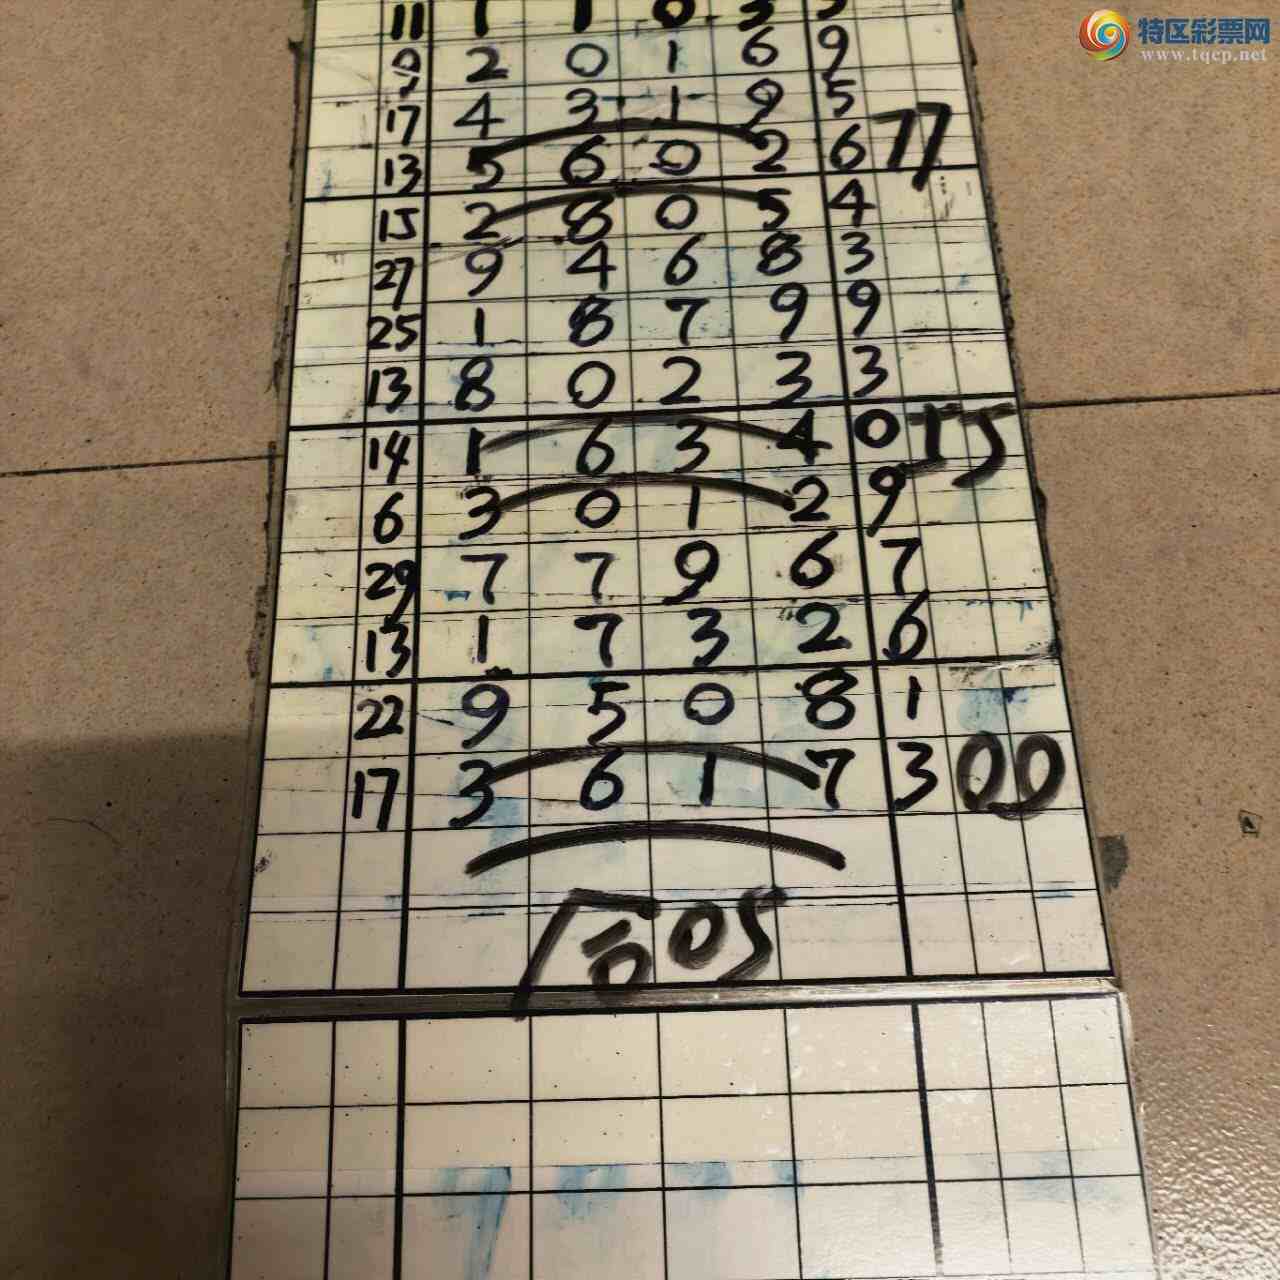 特区彩票网
www.tqcp.net
11 1 1 0 3 5
9 2 0 1 6 9
17 4 3 1 9 5
13 5 6 0 2 6 77
15 2 8 0 5 4
27 9 4 6 8 3
25 1 8 7 9 9
13 8 0 2 3 3
14 1 6 3 4 0 15
6 3 0 1 2 9
29 7 7 9 6 7
13 1 7 3 2 6
22 9 5 0 8 1
17 3 6 1 7 3 00
05